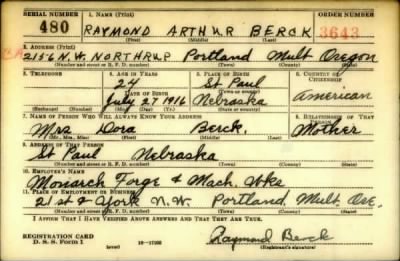 SERIAL NUMBER 1. NAME (Print) ORDER NUMBER
480 RAYMOND ARTHUR BERCK 3643
(First) (Middle) (Last)
2. ADDRESS (Print)
2156 N.W. NORTHRUP Portland Mult Oregon
(Number and street or R. F. D. number) (Town) (County) (State)
3. TELEPHONE 4. AGE IN YEARS 5. PLACE OF BIRTH 6. COUNTRY OF CITIZENSHIP
24 St Paul
DATE OF BIRTH (Town or county)
July 27 1916 Nebraska American
(Exchange) (Number) (Mo.) (Day) (Yr.) (State or country)
7. NAME OF PERSON WHO WILL ALWAYS KNOW YOUR ADDRESS 8. RELATIONSHIP OF THAT PERSON
Mrs Dora Berck. Mother
(Mr., Mrs., Miss) (First) (Middle) (Last)
9. ADDRESS OF THAT PERSON
St Paul Nebraska
(Number and street or R. F. D. number) (Town) (County) (State)
10. EMPLOYER'S NAME
Monarch Forge & Mach. Wks
11. PLACE OF EMPLOYMENT OR BUSINESS
21st & York N.W. Portland, Mult. Ore.
(Number and street or R. F. D. number) (Town) (County) (State)
I AFFIRM THAT I HAVE VERIFIED ABOVE ANSWERS AND THAT THEY ARE TRUE.
REGISTRATION CARD
D. S. S. Form 1
Raymond Berck
(Registrant's signature)